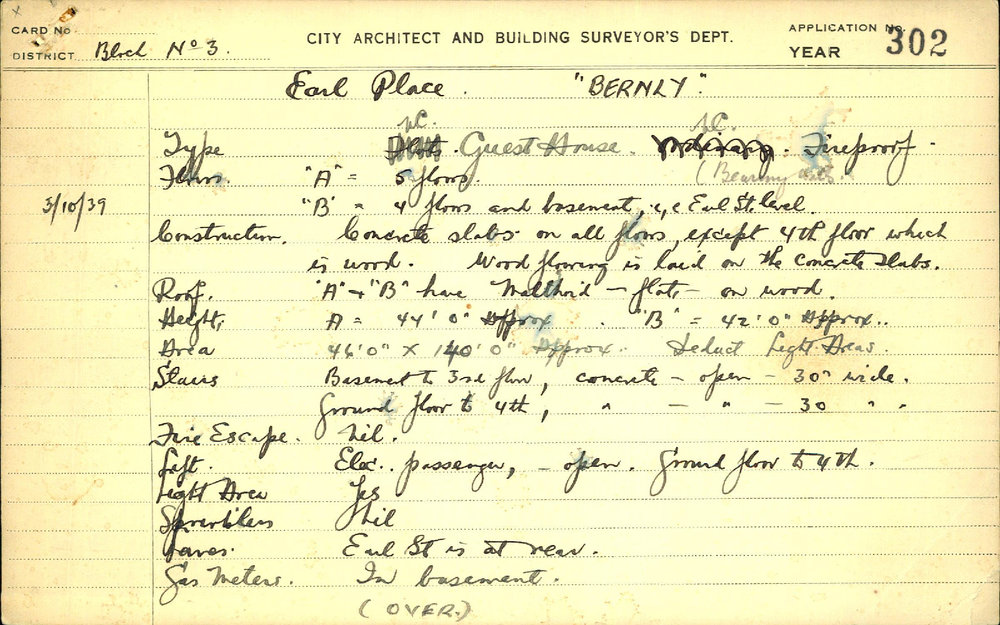 CARD No
CITY ARCHITECT AND BUILDING SURVEYOR'S DEPT.
APPLICATION No 302
DISTRICT Block No 3.
YEAR
Earl Place. "BERNLY".
Type Flats. Guest House. Ordinary. Fireproof.
(Bearing
Floors. "A" = 5 floors.
3/10/39
"B" = 4 floors and basement, i,e Earl St. level.
Construction. Concrete slabs on all floors, except 4th floor which
is wood. Wood flooring is laid on the concrete slabs.
Roof. "A" + "B" have Malthoid – flat – on wood.
Height, A = 44' 0" Approx. "B" = 42' 0" Approx..
Area 46' 0" X 140' 0" Approx. Deduct Light Areas.
Stairs Basement to 3rd floor, concrete – open – 30" wide.
Ground floor to 4th, " – " – 30 " "
Fire Escape. Nil.
Lift. Elec. passenger, – open. Ground floor to 4th.
Light Area Yes
Sprinklers Nil
Lanes. Earl St is at rear.
Gas Meters. In basement.
(OVER.)